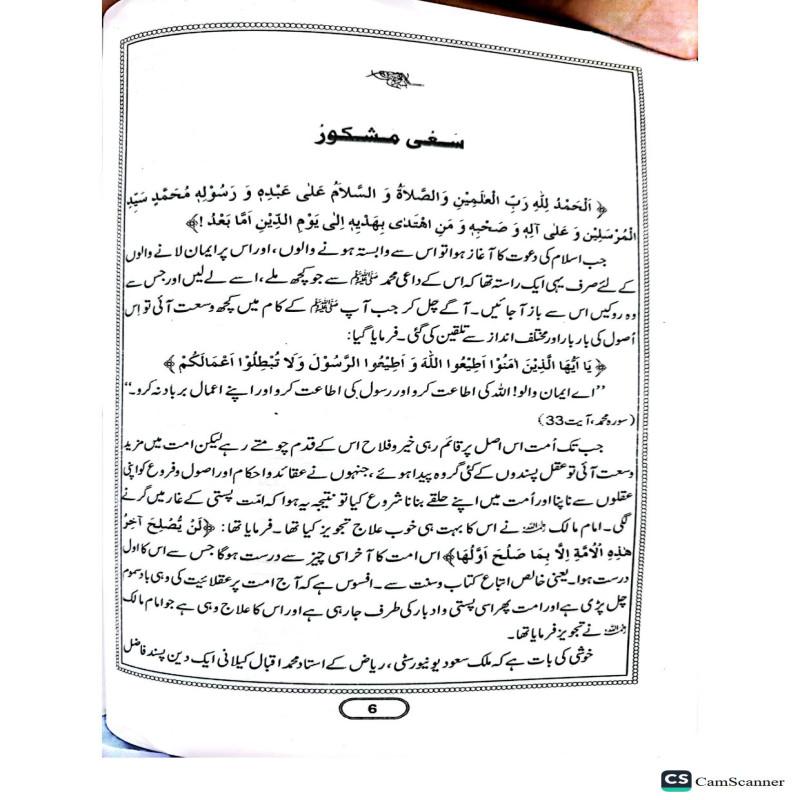 سَعْی مشکورْ
﴿ اَلْحَمْدُ لِلّٰهِ رَبِّ الْعٰلَمِیْنِ وَالصَّلَاةُ وَ السَّلَامُ عَلٰی عَبْدِهٖ وَ رَسُوْلِهٖ مُحَمَّدٍ سَیِّدِ
الْمُرْسَلِیْنَ وَ عَلٰی آلِهٖ وَ صَحْبِهٖ وَ مَنِ اهْتَدٰی بِهَدْیِهٖ اِلٰی یَوْمِ الدِّیْنِ اَمَّا بَعْدُ !﴾
جب اسلام کی دعوت کا آغاز ہوا تو اس سے وابستہ ہونے والوں، اور اس پر ایمان لانے والوں
کے لئے صرف یہی ایک راستہ تھا کہ اس کے داعی محمد ﷺ سے جو کچھ ملے، اسے لے لیں اور جس سے
وہ روکیں اس سے باز آ جائیں۔ آگے چل کر جب آپ ﷺ کے کام میں کچھ وسعت آئی تو اِس
اُصول کی بار بار اور مختلف انداز سے تلقین کی گئی۔ فرمایا گیا:
﴿ یَا اَیُّهَا الَّذِیْنَ اٰمَنُوْا اَطِیْعُوا اللّٰهَ وَ اَطِیْعُوا الرَّسُوْلَ وَلَا تُبْطِلُوْا اَعْمَالَکُمْ ﴾
’’اے ایمان والو! اللہ کی اطاعت کرو اور رسول کی اطاعت کرو اور اپنے اعمال برباد نہ کرو۔‘‘
(سورہ محمد، آیت 33)
جب تک اُمت اس اصل پر قائم رہی خیر و فلاح اس کے قدم چومتے رہے لیکن امت میں مزید
وسعت آئی تو عقل پسندوں کے کئی گروہ پیدا ہوئے، جنہوں نے عقائد و احکام اور اصول و فروع کو اپنی
عقلوں سے ناپنا اور اُمت میں اپنے حلقے بنانا شروع کیا تو نتیجہ یہ ہوا کہ امّت پستی کے غار میں گرنے
لگی۔ امام مالک رحمہ اللہ نے اس کا بہت ہی خوب علاج تجویز کیا تھا۔ فرمایا تھا: ﴿لَنْ یُّصْلِحَ آخِرُ
هٰذِهِ الْاُمَّةِ اِلَّا بِمَا صَلُحَ اَوَّلُهَا﴾ اس امت کا آخر اسی چیز سے درست ہوگا جس سے اس کا اول
درست ہوا۔ یعنی خالص اتباع کتاب و سنت سے۔ افسوس ہے کہ آج امت پر عقلائیت کی وہی باد سموم
چل پڑی ہے اور امت پھر اسی پستی و ادبار کی طرف جا رہی ہے اور اس کا علاج وہی ہے جو امام مالک
رحمہ اللہ نے تجویز فرمایا تھا۔
خوشی کی بات ہے کہ ملک سعود یونیورسٹی، ریاض کے استاد محمد اقبال کیلانی ایک دین پسند فاضل
6
CS CamScanner